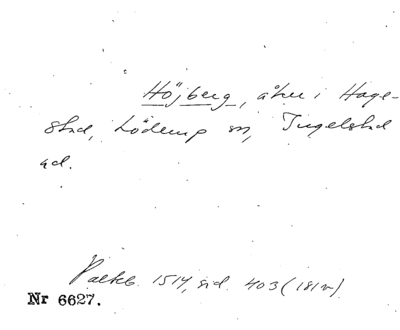 Höjberg, åker i Hage-
stad, Löderup sn, Ingelstad
hd.
Palteb. 1514, sid. 403 (181v)
Nr 6627.